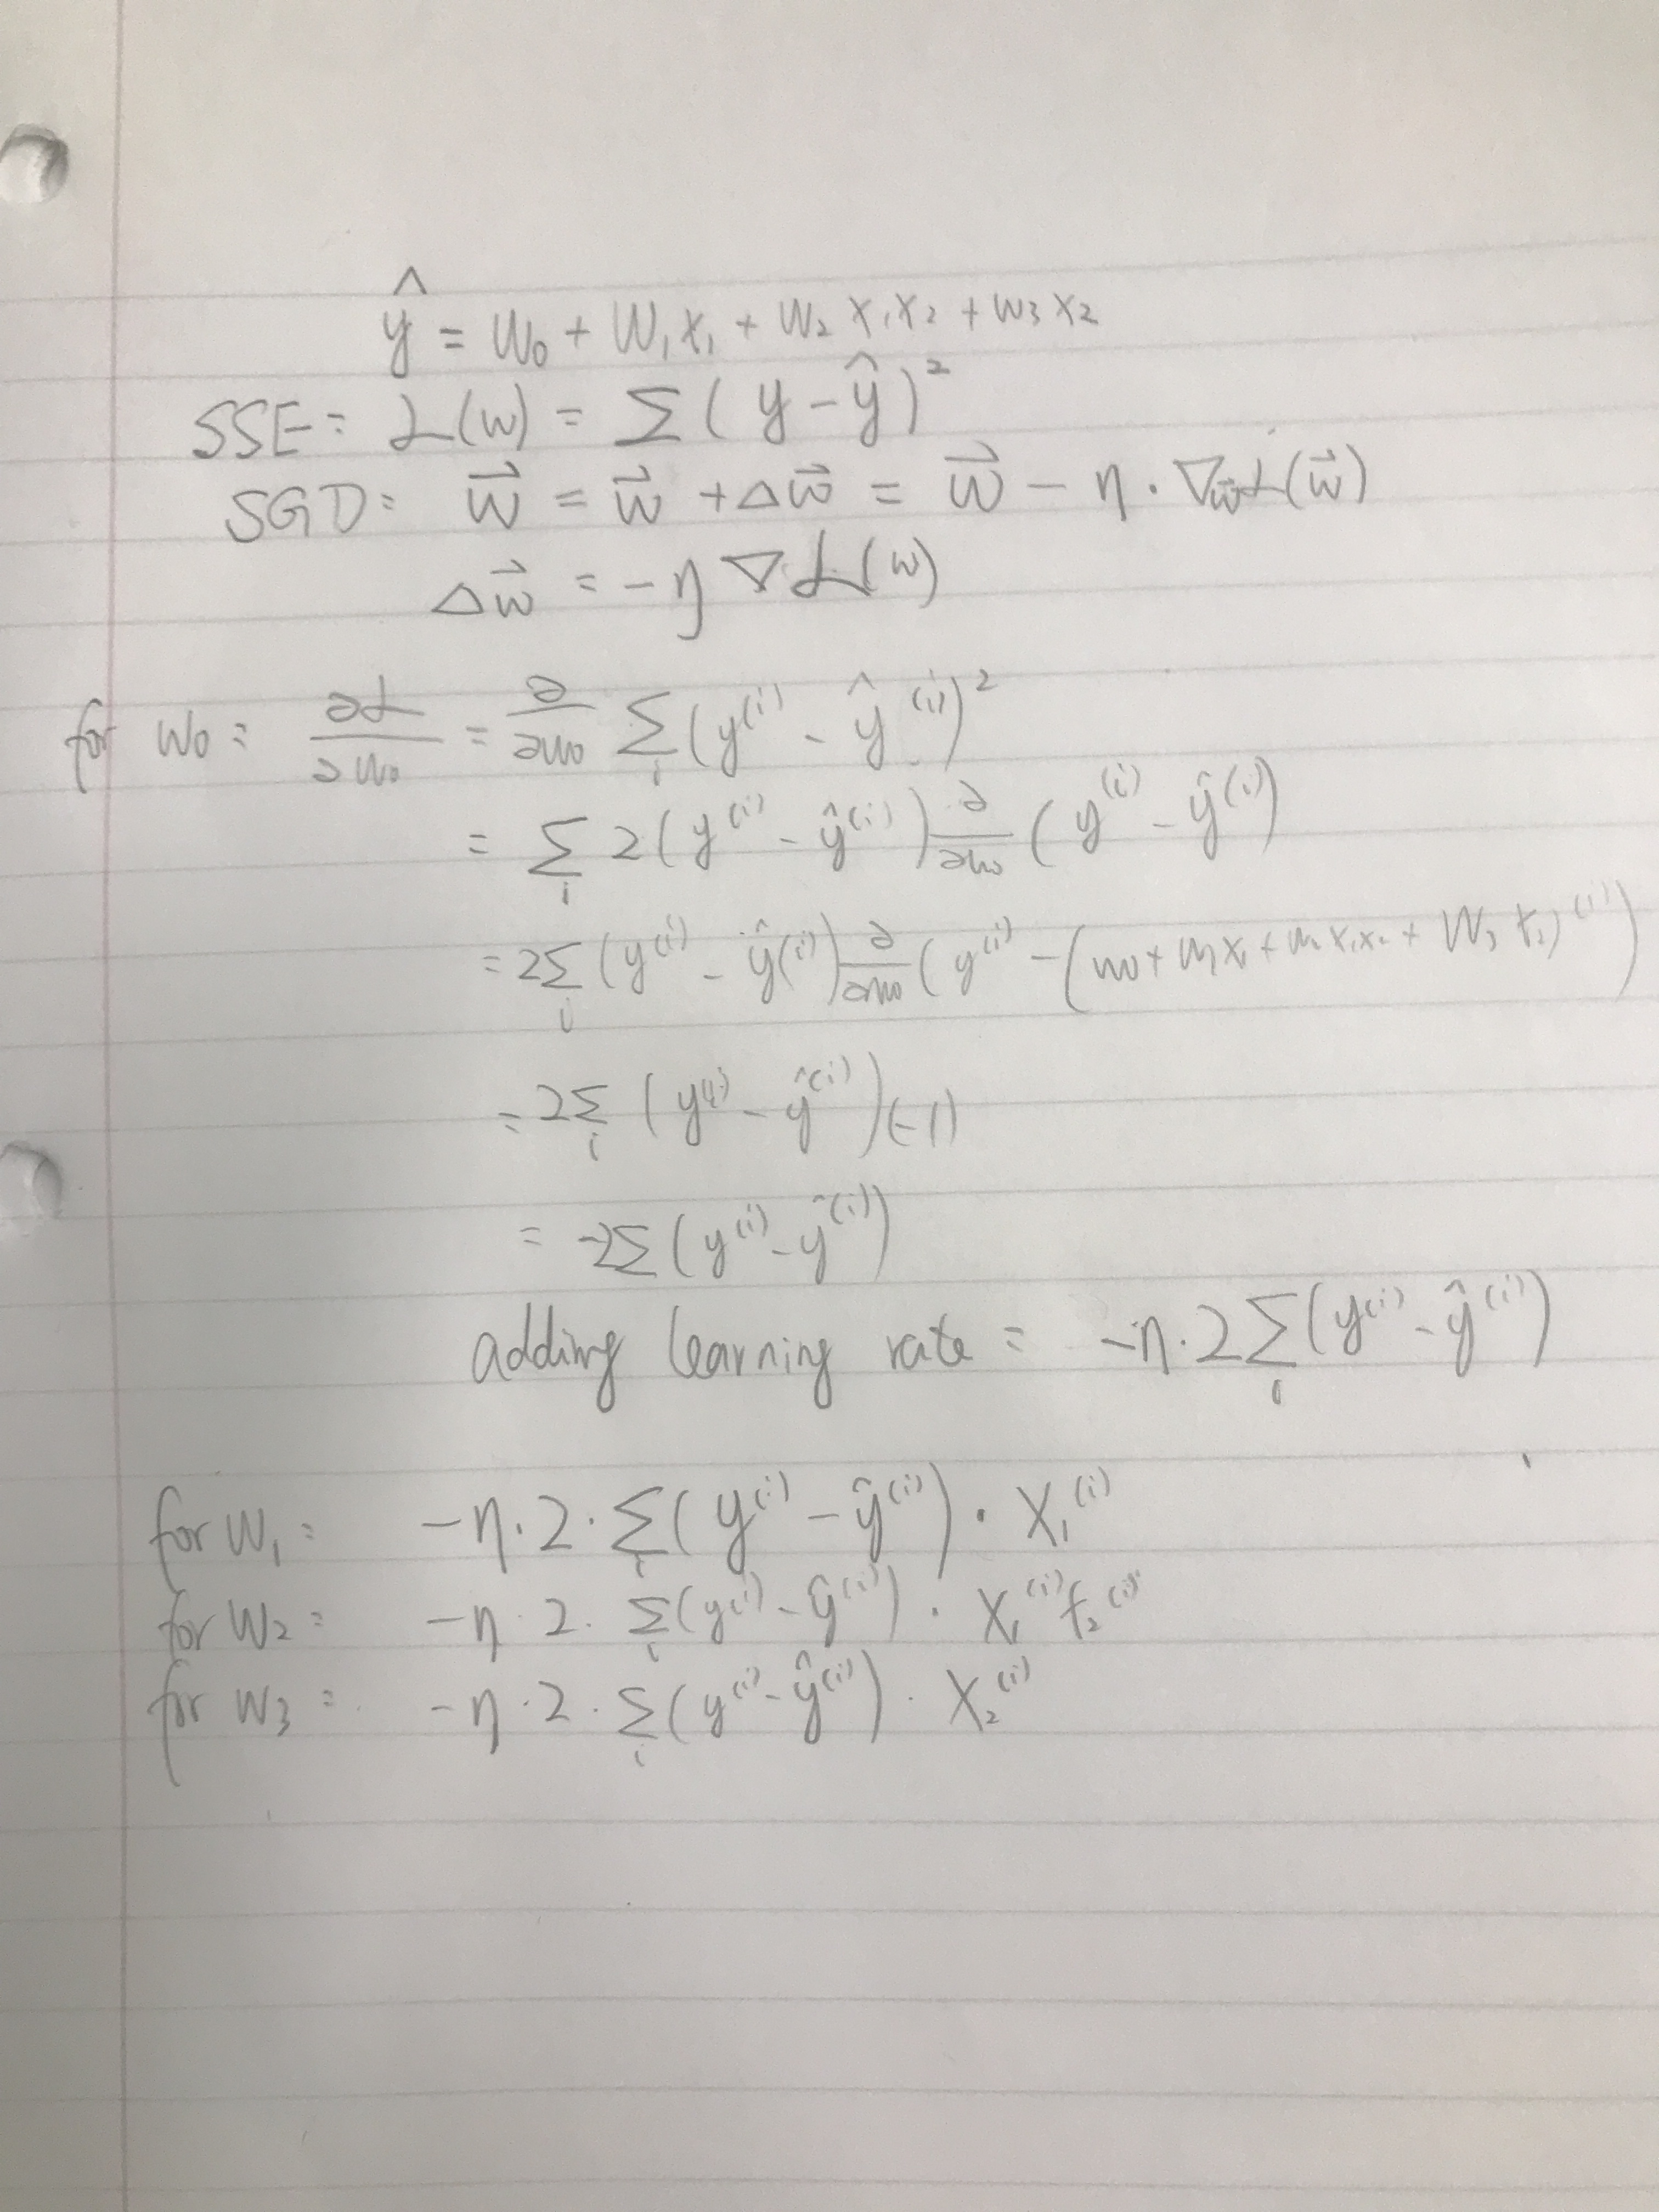 ŷ = w₀ + w₁x₁ + w₂x₁x₂ + w₃x₂
SSE: L(w) = Σ(y - ŷ)²
SGD: w⃗ = w⃗ + Δw⃗ = w⃗ - η · ∇w⃗L(w⃗)
Δw⃗ = -η∇L(w)
for w₀: ∂L/∂w₀ = ∂/∂w₀ Σᵢ(y⁽ⁱ⁾ - ŷ⁽ⁱ⁾)²
= Σᵢ 2(y⁽ⁱ⁾ - ŷ⁽ⁱ⁾) ∂/∂w₀ (y⁽ⁱ⁾ - ŷ⁽ⁱ⁾)
= 2Σᵢ (y⁽ⁱ⁾ - ŷ⁽ⁱ⁾) ∂/∂w₀ (y⁽ⁱ⁾ - (w₀ + w₁x₁ + w₂x₁x₂ + w₃x₂)⁽ⁱ⁾)
= 2Σᵢ (y⁽ⁱ⁾ - ŷ⁽ⁱ⁾)(-1)
= -2Σ(y⁽ⁱ⁾ - ŷ⁽ⁱ⁾)
adding learning rate = -η·2Σᵢ(y⁽ⁱ⁾ - ŷ⁽ⁱ⁾)
for w₁: -η·2·Σᵢ(y⁽ⁱ⁾ - ŷ⁽ⁱ⁾) · x₁⁽ⁱ⁾
for w₂: -η·2·Σᵢ(y⁽ⁱ⁾ - ŷ⁽ⁱ⁾) · x₁⁽ⁱ⁾x₂⁽ⁱ⁾
for w₃: -η·2·Σᵢ(y⁽ⁱ⁾ - ŷ⁽ⁱ⁾) · x₂⁽ⁱ⁾